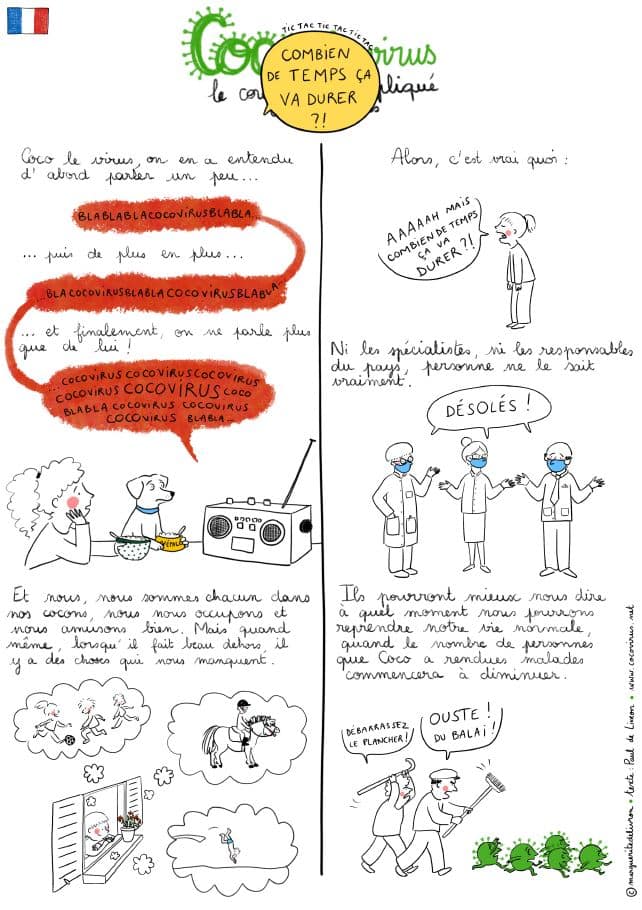 TIC TAC TIC TAC TIC TAC
Coco virus
COMBIEN
DE TEMPS ÇA
VA DURER
?!
le cor pliqué
Coco le virus, on en a entendu
d'abord parler un peu...
BLABLABLACOCOVIRUSBLABLA...
... puis de plus en plus...
...BLACOCOVIRUSBLABLACOCOVIRUSBLABLA...
... et finalement, on ne parle plus
que de lui !
...COCOVIRUS COCOVIRUSCOCOVIRUS
COCOVIRUS COCOVIRUS COCO
BLABLA COCOVIRUS COCOVIRUS
COCOVIRUS BLABLA...
Et nous, nous sommes chacun dans
nos cocons, nous nous occupons et
nous amusons bien. Mais quand
même, lorsqu'il fait beau dehors, il
y a des choses qui nous manquent.
Alors, c'est vrai quoi :
AAAAAH MAIS
COMBIEN DE TEMPS
ÇA VA
DURER ?!
Ni les spécialistes, ni les responsables
du pays, personne ne le sait
vraiment.
DÉSOLÉS !
Ils pourront mieux nous dire
à quel moment nous pourrons
reprendre notre vie normale,
quand le nombre de personnes
que Coco a rendues malades
commencera à diminuer.
DÉBARRASSEZ
LE PLANCHER !
OUSTE !
DU BALAI !
© margueritedelivron • texte : Paul de Livron • www.cocovirus.net